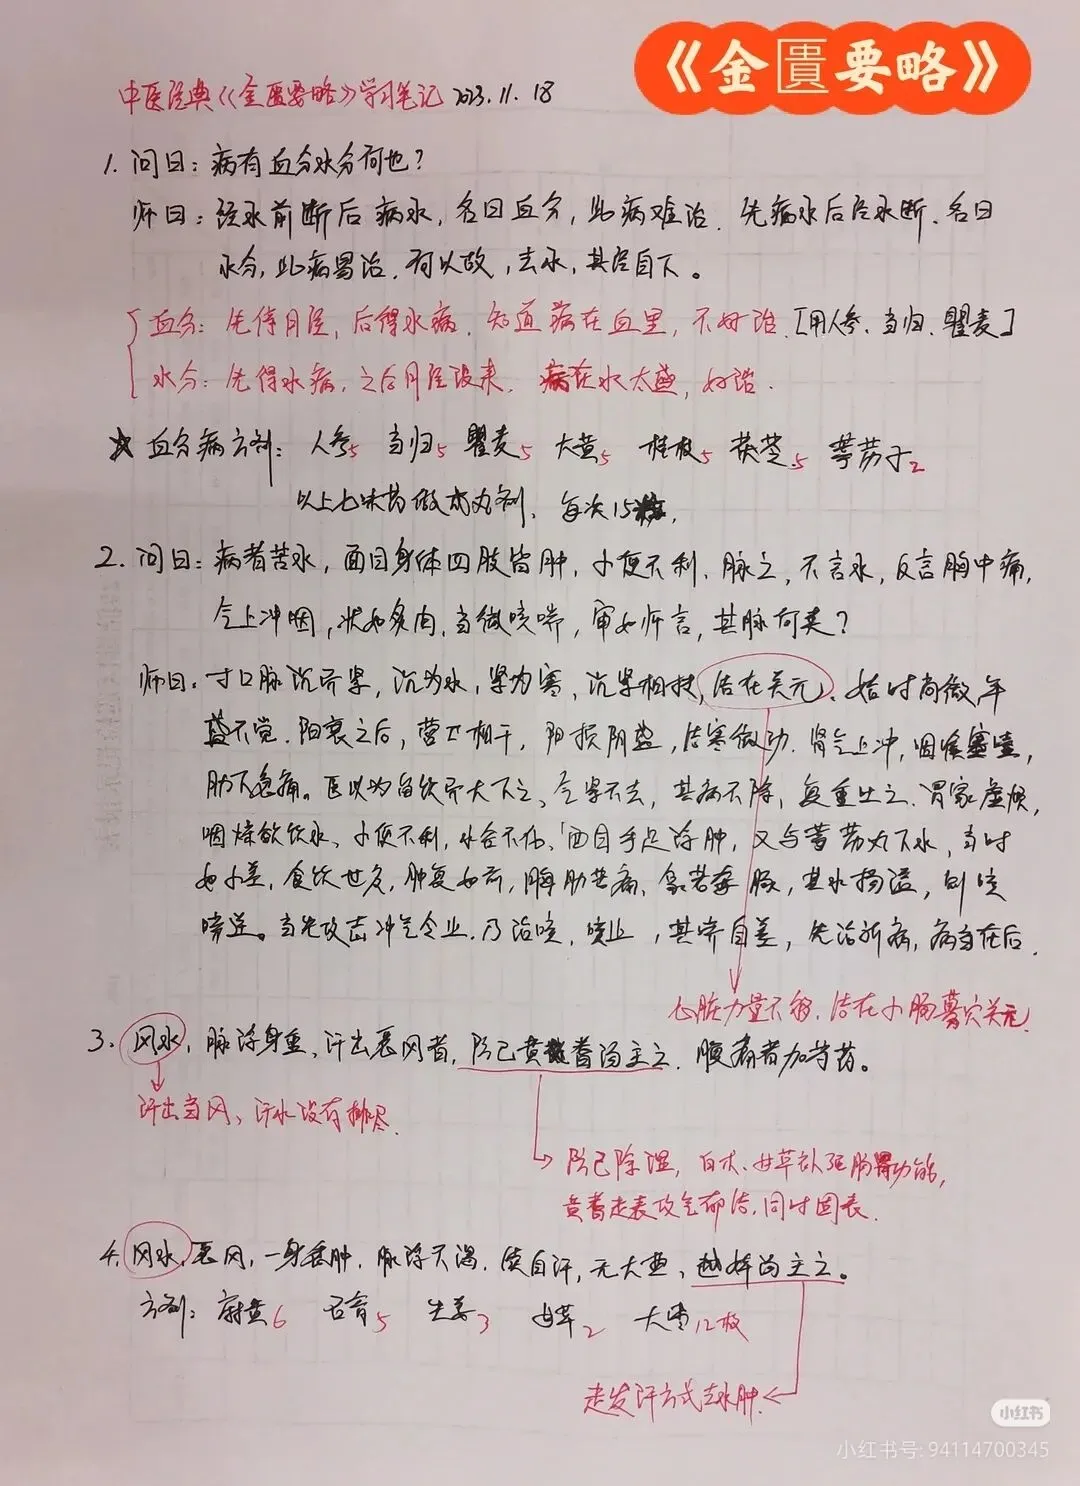 《金匱要略》
中医经典《金匮要略》学习笔记 2023.11.18
1. 问曰：病有血分水分何也？
师曰：经水前断后病水，名曰血分，此病难治．先病水后经水断．名曰
水分，此病易治．何以故，去水，其经自下。
血分：先停月经，后得水病．知道病在血里，不好治．[用人参、当归、瞿麦]
水分：先得水病．之后月经没来．病在水太盛，好治．
☆ 血分病方剂：人参5 当归5 瞿麦5 大黄5 桂枝5 茯苓5 葶苈子2
以上七味药做成丸剂、每次15
2. 问曰：病者苦水，面目身体四肢皆肿，小便不利、脉之，不言水，反言胸中痛，
气上冲咽，状如炙肉，当微咳喘，审如师言，其脉何类？
师曰．寸口脉沉而紧，沉为水，紧为寒，沉紧相抟，结在关元．始时尚微，年
盛不觉．阳衰之后，营卫相干，阳损阴盛，结寒微动．肾气上冲，咽喉塞噎，
胁下急痛。医以为留饮而大下之、气紧不去，其病不除，复重吐之．胃家虚烦，
咽燥欲饮水、小便不利，水谷不化、面目手足浮肿，又与葶苈丸下水，当时
如小差，食饮过度，肿复如前，胸胁苦痛，象若奔豚，其水扬溢，则咳
喘逆。当先攻击冲气令止．乃治咳．咳止，其喘自差，先治新病，病当在后．
心脏力量不够．结在小肠募穴关元．
3. 风水，脉浮身重、汗出恶风者，防己黄芪汤主之．腹痛者加芍药。
汗出当风、汗水没有排尽．
防己除湿，白术、甘草补强肠胃功能，
黄芪走表攻气郁结，同时固表．
4. 风水，恶风，一身悉肿．脉浮不渴．续自汗，无大热，越婢汤主之。
方剂：麻黄6 石膏5 生姜3 甘草2 大枣12枚
走发汗方式去水肿．
小红书
小红书号：94114700345